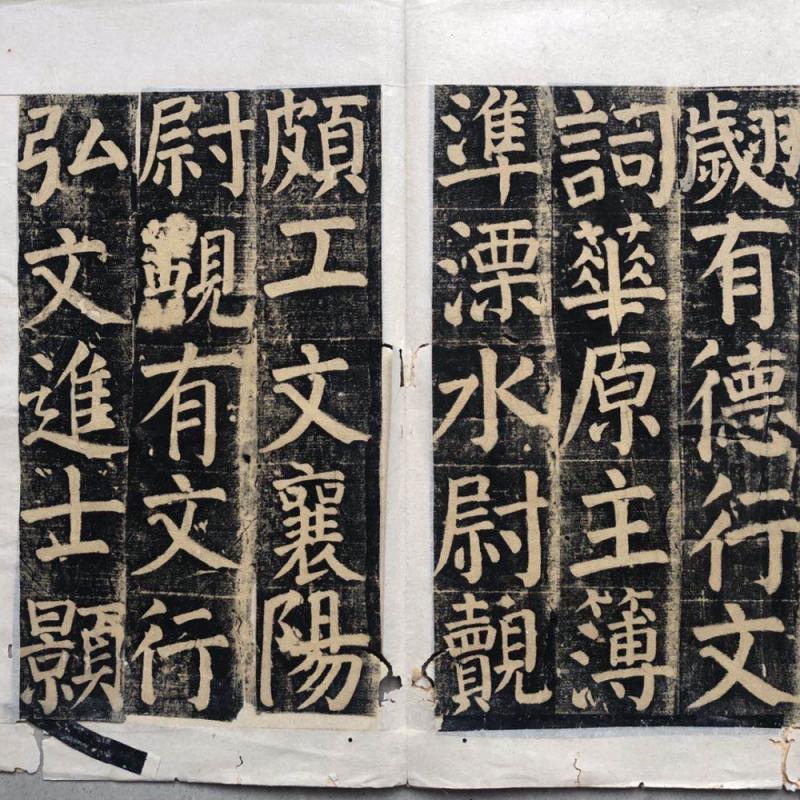 翽有德行文
詞華原主簿
準溧水尉覿
頗工文襄陽
尉覲有文行
弘文進士顥